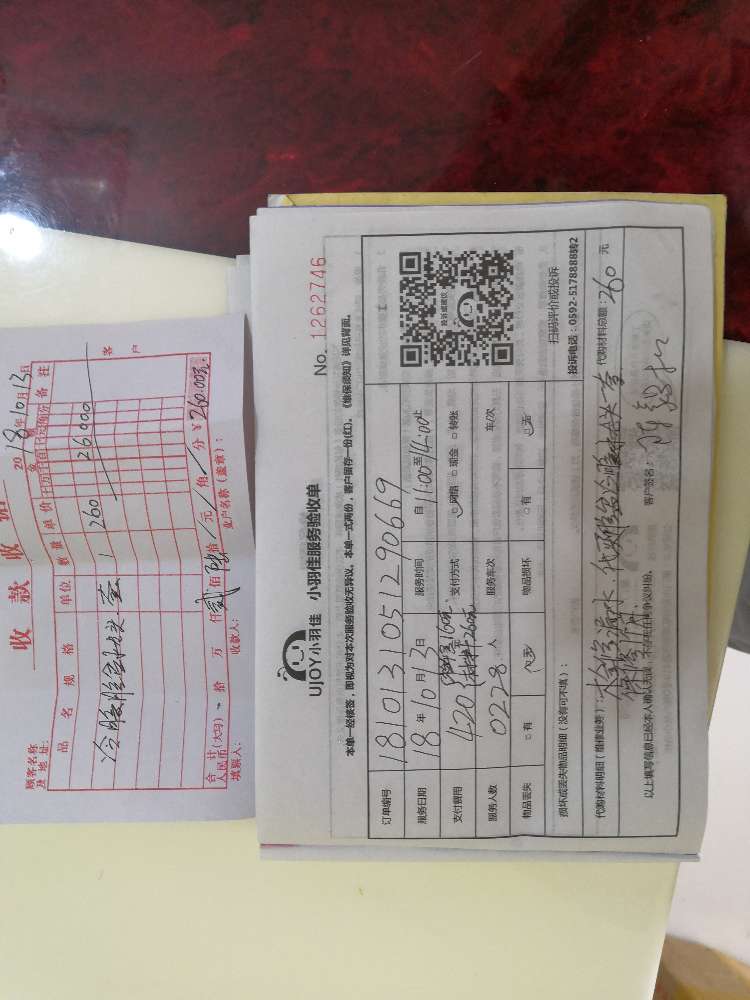 收款收据
2018年10月13日
顾客名称
及地址:
品名 规格 单位 数量 单价 金额 备注
1 260 26000
合计
人民币(大写) 拾 万 仟 贰佰 陆拾 元 角 分 ¥260.00元
填票人: 收款人: 业户名称(盖章):
客户
UJOY小羽佳 小羽佳服务验收单 No. 1262746
本单一经候签,即视为对本次服务验收无异议。本单一式两份,客户留存一份(红)。《维保须知》详见背面。
订单编号 181013105129066​9
服务日期 18年10月13日 服务时间 自11:00至14:00止
支付费用 420 160元 材料260元 支付方式 网络 □现金 □转账
服务人数 0228 人 服务车次 车/次
物品丢失 □有 ☑无 物品损坏 □有 ☑无
扫码评价或投诉
投诉电话:0592-5178888转2
损坏或丢失物品明细(没有可不填):
代购材料明细(维修业务): 检修漏水.代购 代购材料总额:260元
以上填写信息已经本人确认无误,不存在任何争议纠纷。 客户签名: